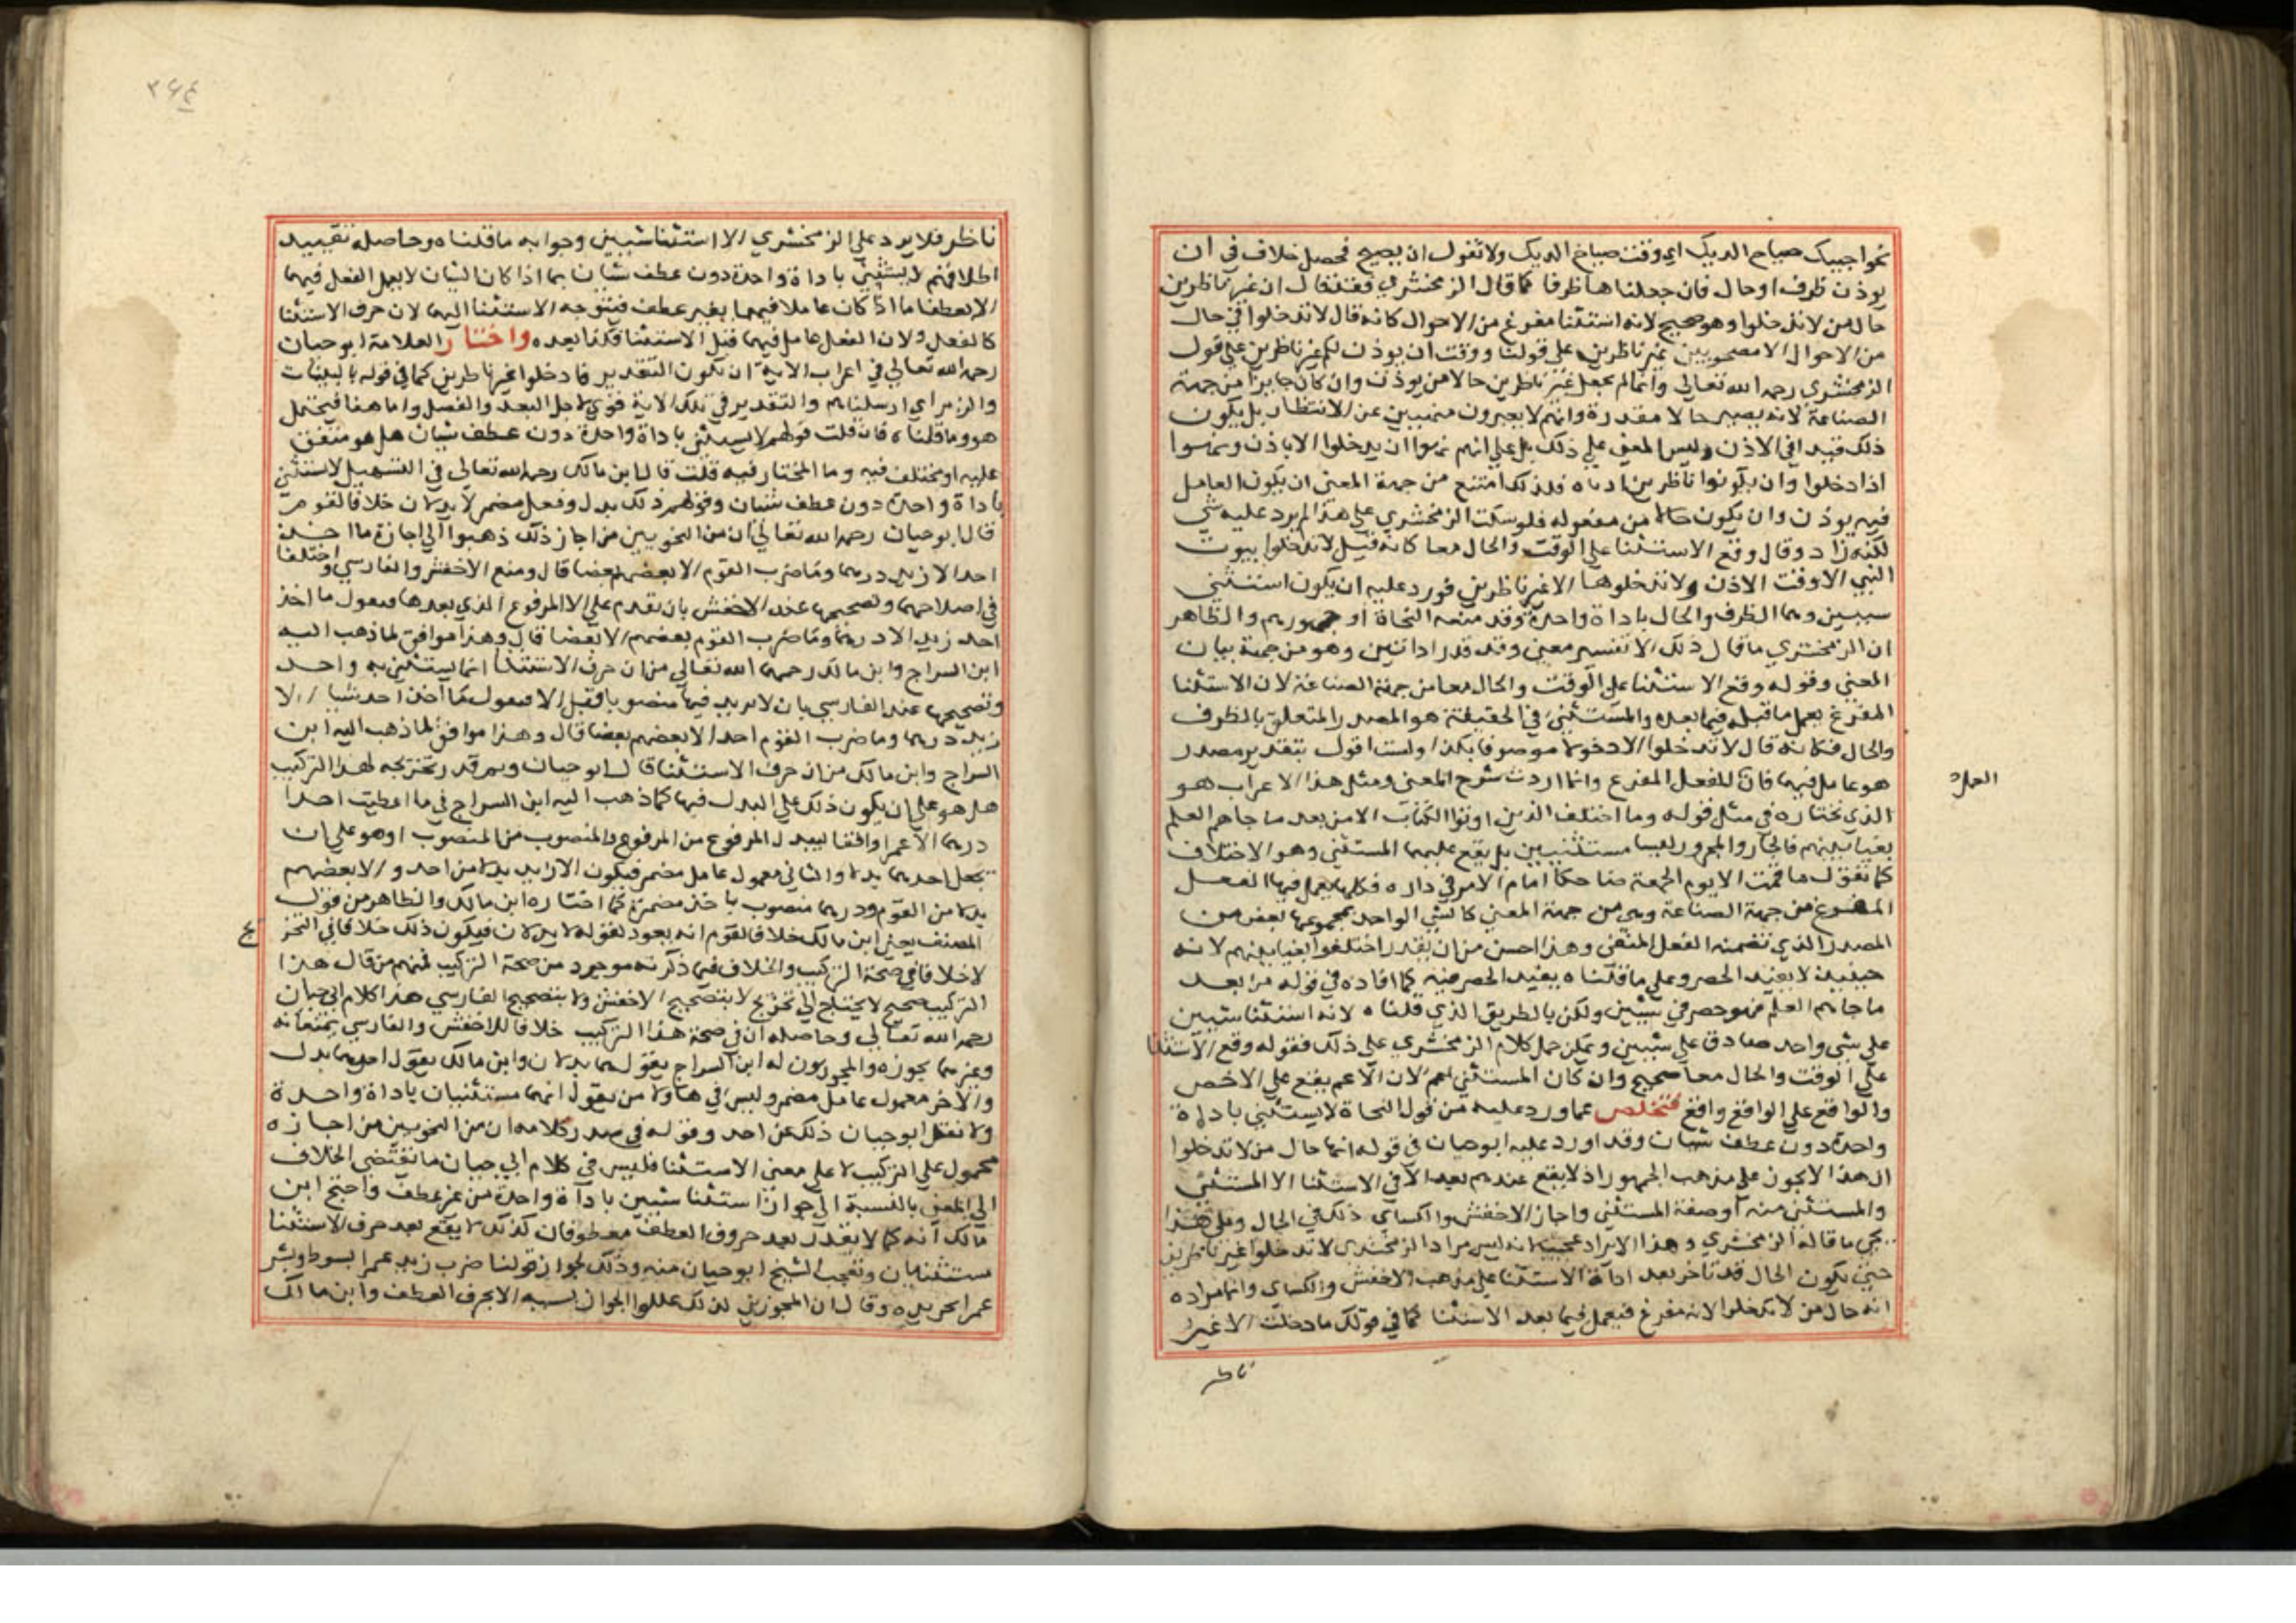 نحو اجيبك صياح الديك اي وقت صياح الديك ولا تقول ان يصيح فحصل خلاف في ان
يوذن ظرف او حال فان جعلناها ظرفا كما قال الزمخشري فقد قال ان غير ناظرين
حال من لا تدخلوا وهو صحيح لانه استثنا مفرغ من الاحوال كانه قال لا تدخلوا في حال
من الاحوال الا مصحوبين غير ناظرين على قولنا ووقت ان يوذن لكم غير ناظرين على قول
الزمخشري رحمه الله تعالى وانما لم يجعل غير ناظرين حالا من يوذن وان كان جايزا من جهة
الصناعة لانه يصير حالا مقدرة وانهم لا يصيرون منهيين عن الانتظار بل يكون
ذلك قيدا في الاذن وليس المعنى على ذلك بل على انهم نهوا ان يدخلوا الا باذن ونهوا
اذا دخلوا وان يكونوا ناظرين اناه فلذلك امتنع من جهة المعنى ان يكون العامل
فيه يوذن وان يكون حالا من مفعوله فلو سكت الزمخشري على هذا لم يرد عليه شي
لكنه زاد وقال وقع الاستثنا على الوقت والحال معا كانه قيل لا تدخلوا بيوت
النبي الا وقت الاذن ولا تدخلوها الا غير ناظرين فورد عليه ان يكون استثنى
سببين وهما الظرف والحال باداة واحدة وقد منعه النحاة او جمهورهم والظاهر
ان الزمخشري ما قال ذلك الا تفسير معنى وقد قدر اداتين وهو من جهة بيان
المعنى وقوله وقع الاستثنا على الوقت والحال معا من جهة الصناعة لان الاستثنا
المفرغ يعمل ما قبله فيما بعده والمستثنى في الحقيقة هو المصدر المتعلق بالظرف
والحال فكانه قال لا تدخلوا الا دخولا موصوفا بكذا ولست اقول بتقدير مصدر
هو عامل فيهما فان للفعل المفرغ وانما اردت شرح المعنى ومثل هذا الاعراب هو
العمل
الذي نختاره في مثل قوله وما اختلف الذين اوتوا الكتاب الا من بعد ما جاهم العلم
بغيا بينهم فالجار والمجرور ليسا مستثنيين بل يقع عليهما المستثنى وهو الاختلاف
كما تقول ما قمت الا يوم الجمعة ضاحكا امام الامير في داره فكلها يعمل فيها الفعل
المفرغ من جهة الصناعة وهي من جهة المعنى كالشي الواحد بمجموعها بعض من
المصدر الذي تضمنه الفعل المنفي وهذا احسن من ان يقدر اختلفوا بغيا بينهم لانه
حينيذ لا يفيد الحصر وعلى ما قلناه يفيد الحصر فيه كما افاده في قوله من بعد
ما جاهم العلم فهو حصر في شيئين ولكن بالطريق الذي قلناه لانه استثنا شيين
على شي واحد صادق على شيئين ويمكن حمل كلام الزمخشري على ذلك فقوله وقع الاستثنا
على الوقت والحال معا صحيح وان كان المستثنى اعم لان الاعم يقع على الاخص
والواقع على الواقع واقع فتخلص عما ورد عليه من قول النحاة لا يستثنى باداة
واحدة دون عطف شيان وقد اورد عليه ابو حيان في قوله انها حال من لا تدخلوا
ان هذا لا يجوز على مذهب الجمهور اذ لا يقع عندهم بعد الا في الاستثنا الا المستثنى
والمستثنى منه او صفة المستثنى واجاز الاخفش والكساي ذلك في الحال وعلى هذا
يجي ما قاله الزمخشري وهذا الايراد عجيب لانه ليس مراد الزمخشري لا تدخلوا غير ناظرين
حتى يكون الحال قد تاخر بعد اداة الاستثنا على مذهب الاخفش والكساي وانما مراده
انه حال من لا تدخلوا لانه مفرغ فيعمل فيما بعد الاستثنا كما في قولك ما دخلت الا غير
ناظر
٣٦٤
ناظر فلا يرد على الزمخشري الا استثنا شيين وجوابه ما قلناه وحاصله تقييد
اطلاقهم لا يستثنى باداة واحدة دون عطف شيان بما اذا كان الشيان لا يعمل الفعل فيهما
الا بعطف اما اذا كان عاملا فيهما بغير عطف فيتوجه الاستثنا اليهما لان حرف الاستثنا
كالفعل ولان الفعل عامل فيهما قبل الاستثنا فكذا بعده واختار العلامة ابو حيان
رحمه الله تعالى في اعراب الاية ان يكون التقدير فادخلوا غير ناظرين كما في قوله بالبينات
والزبر اي ارسلناهم والتقدير في تلك الاية قوي لاجل البعد والفصل واما هنا فيحتمل
هو وما قلناه فان قلت قولهم لا يستثنى باداة واحدة دون عطف شيان هل هو متفق
عليه او مختلف فيه وما المختار فيه قلت قال ابن مالك رحمه الله تعالى في التسهيل لا يستثنى
باداة واحدة دون عطف شيان وموهم ذلك بدل وفعل مضمر لا بدلان خلافا لقوم
قال ابو حيان رحمه الله تعالى ان من النحويين من اجاز ذلك ذهبوا الى اجازة ما اخذ
احد الا زيد درهما وما ضرب القوم الا بعضهم بعضا قال ومنع الاخفش والفارسي واختلفا
في اصلاحهما وتصحيحها عند الاخفش بان يقدم على الا المرفوع الذي بعدها فيقول ما اخذ
احد زيد الا درهما وما ضرب القوم بعضهم الا بعضا قال وهذا موافق لما ذهب اليه
ابن السراج وابن مالك رحمهما الله تعالى من ان حرف الاستثنا انما يستثنى به واحد
وتصحيحها عند الفارسي بان لا يزيد فيها منصوبا قبل الا فيقول ما اخذ احد شيا الا
زيد درهما وما ضرب القوم احدا الا بعضهم بعضا قال وهذا موافق لما ذهب اليه ابن
السراج وابن مالك من ان حرف الاستثنا قال ابو حيان ولم قد ر تخريجه لهذا التركيب
هل هو على ان يكون ذلك على البدل فيهما كما ذهب اليه ابن السراج في ما اعطيت احدا
درهما الا عمرا وانقا ليبدل المرفوع من المرفوع والمنصوب من المنصوب او هو على ان
يجعل احدهما بدلا والثاني معمول عامل مضمر فيكون الا زيد بدلا من احد والا بعضهم
بدلا من القوم ودرهما منصوب باخذ مضمرة كما اختاره ابن مالك والظاهر من قول
المصنف يعني ابن مالك خلافا لقوم انه يعود لقوله لا بدلان فيكون ذلك خلافا في التخر
يج
لا خلافا في صحة التركيب والخلاف فيما ذكرته موجود من صحة التركيب فمنهم من قال هذا
التركيب صحيح لا يحتاج الى تخريج لا بتصحيح الاخفش ولا بتصحيح الفارسي هذا كلام ابي حيان
رحمه الله تعالى وحاصله ان في صحة هذا التركيب خلافا للاخفش والفارسي يمنعانه
وغيرهما يجوزه والمجوزون له ابن السراج يقول هما بدلان وابن مالك يقول احدهما بدل
والاخر معمول عامل مضمر وليس في هاولا من يقول انهما مستثنيان باداة واحدة
ولا نقل ابو حيان ذلك عن احد وقوله في صدر كلامه ان من النحويين من اجازه
محمول على التركيب لا على معنى الاستثنا فليس في كلام ابي حيان ما يقتضي الخلاف
الى المعنى بالنسبة الى جواز استثنا شيين باداة واحدة من غير عطف واحتج ابن
مالك انه كما لا يقدر بعد حروف العطف معطوفان كذلك لا يقع بعد حرف الاستثنا
مستثنيان وتعجب الشيخ ابو حيان منه وذلك لجواز قولنا ضرب زيد عمرا بسوط وبشر
عمرا بجريدة وقال ان المجوزين لذلك عللوا الجواز بشبه الا بحرف العطف وابن مالك